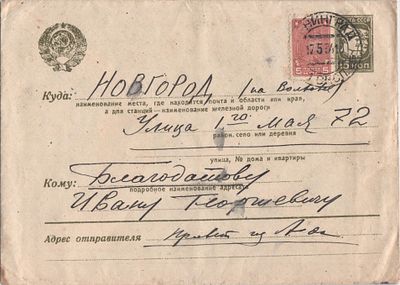 Куда: НОВГОРОД (на Волхове)
наименование места, где находится почта и области или края,
а для станций - наименование железной дороги
Улица 1го Мая 72
район, село или деревня
улица, № дома и квартиры
Кому: Благодатову
подробное наименование адресата
Ивану Георгиевичу
Адрес отправителя привет из
17.5.34